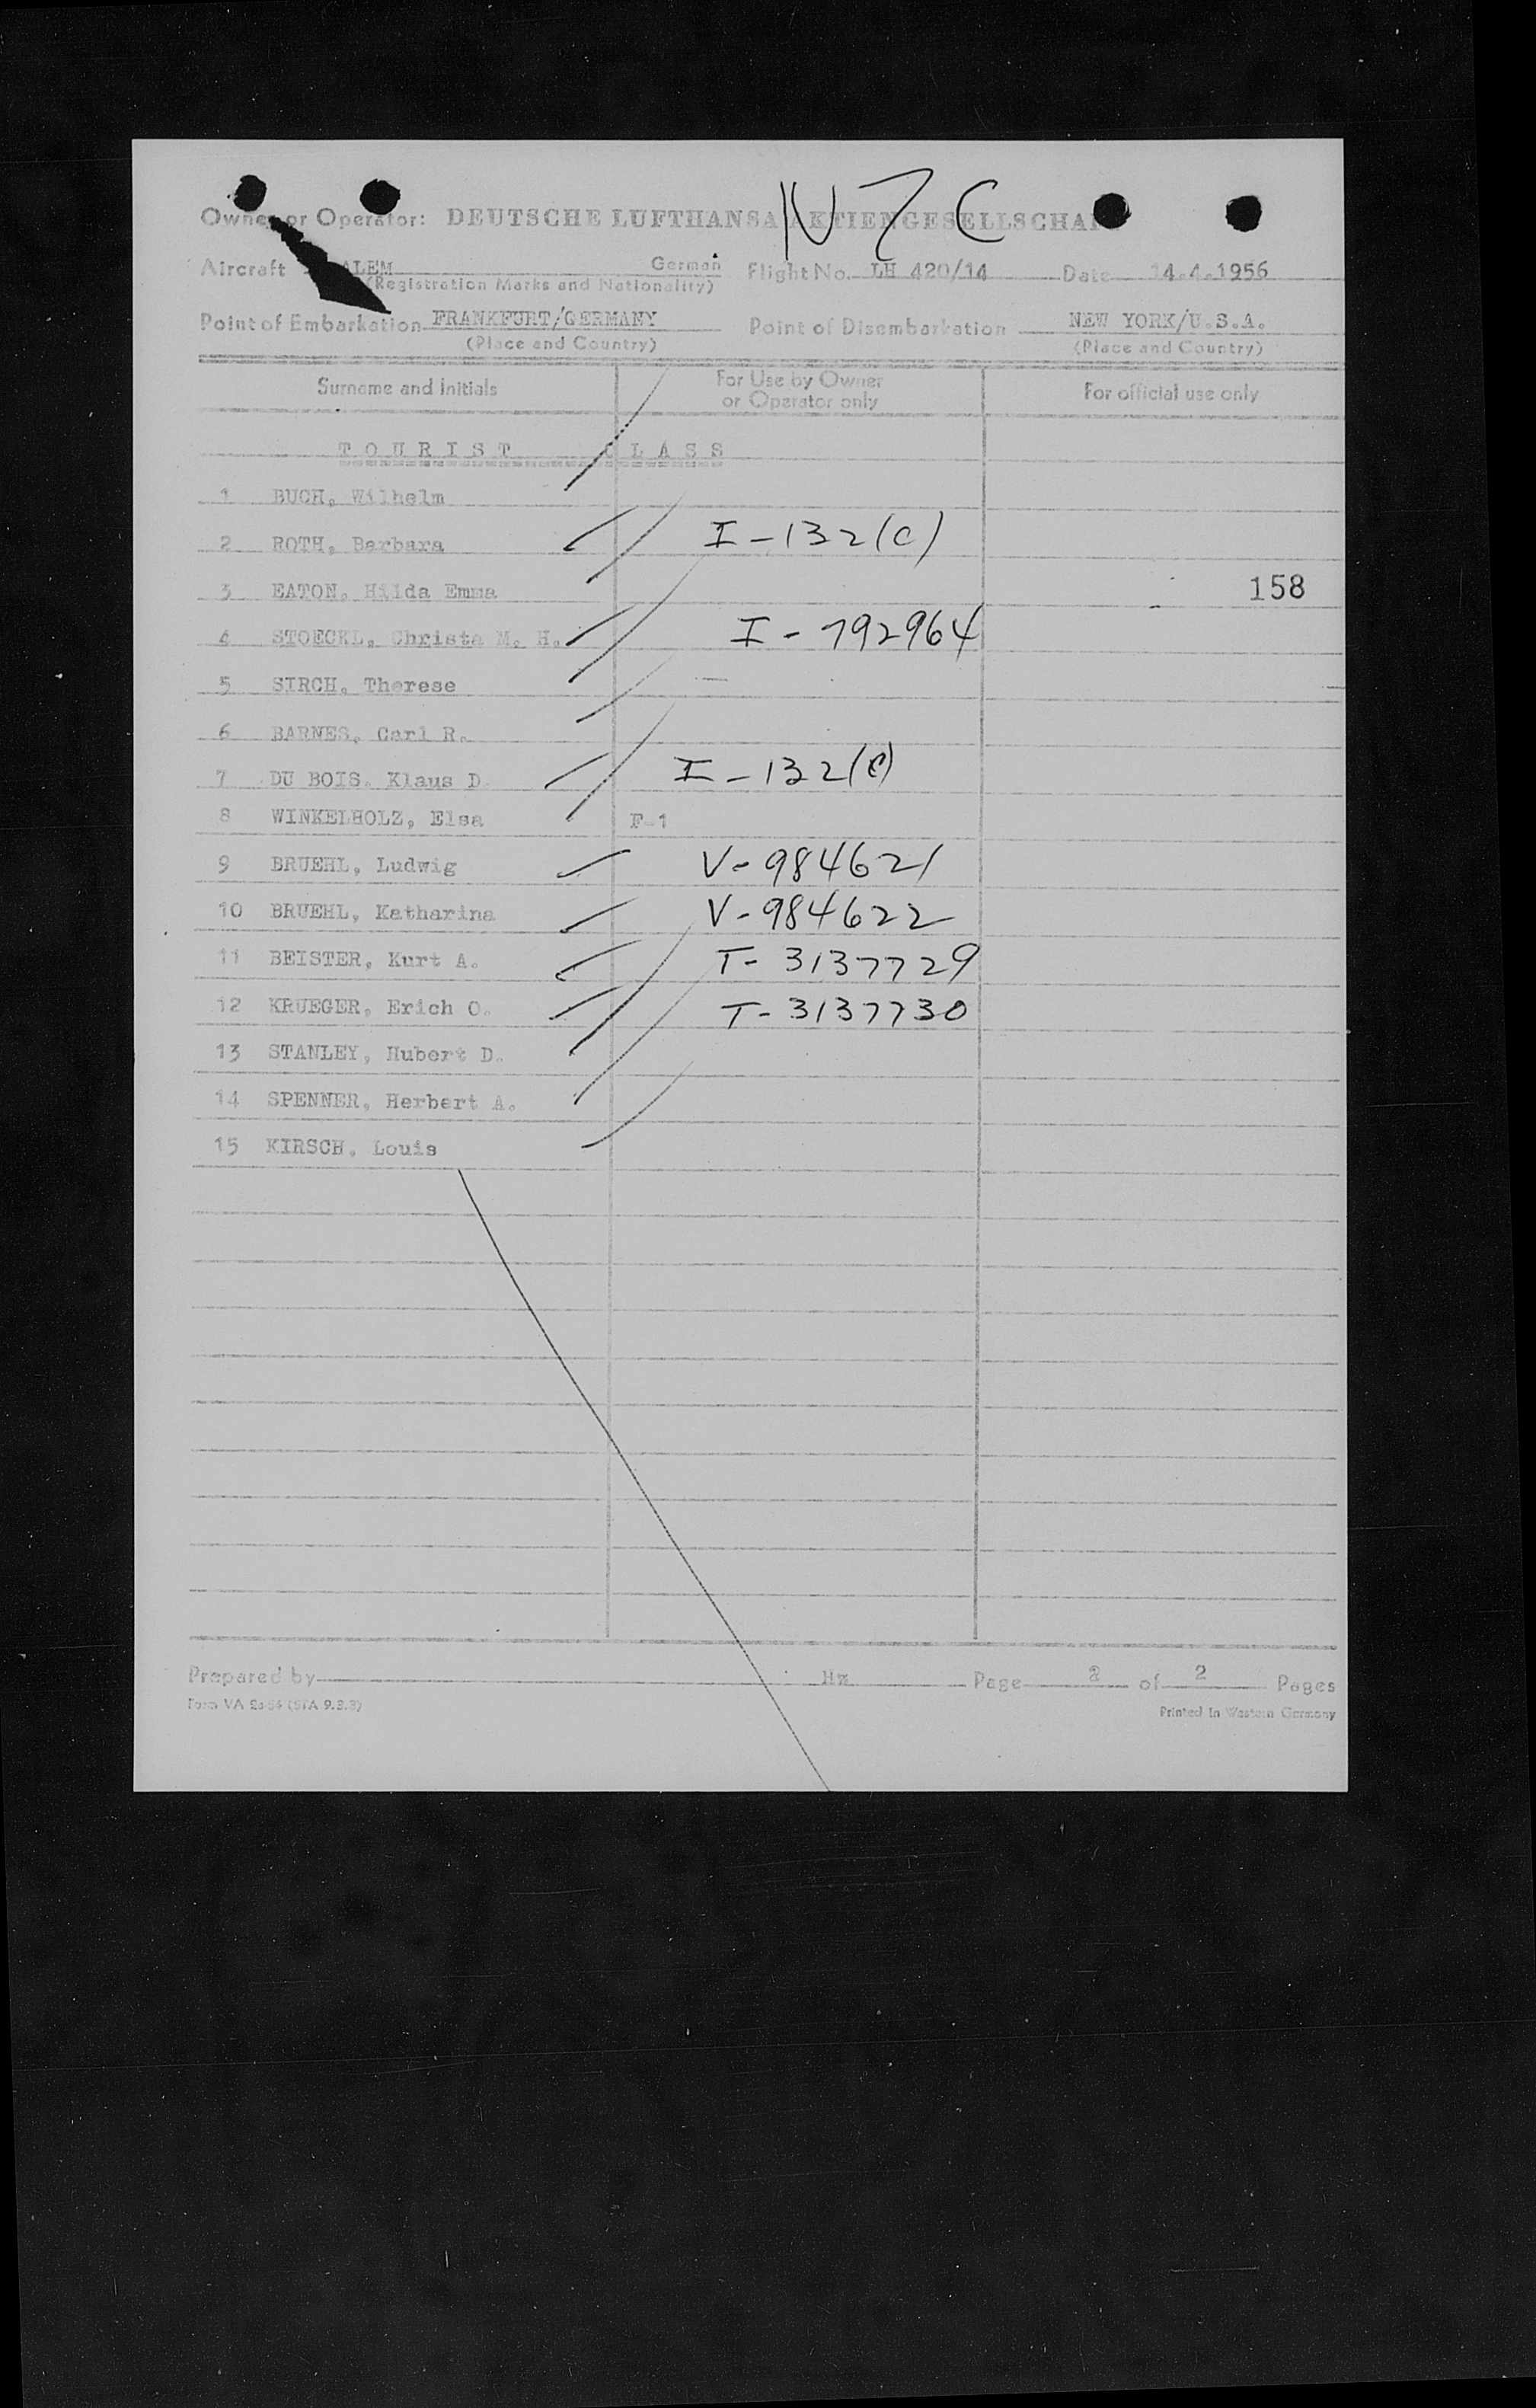 NZC
Owner or Operator: DEUTSCHE LUFTHANSA AKTIENGESELLSCHAF
Aircraft ALEM German Flight No. LH 420/14 Date 14.4.1956
(Registration Marks and Nationality)
Point of Embarkation FRANKFURT/GERMANY Point of Disembarkation NEW YORK/U.S.A.
(Place and Country) (Place and Country)
Surname and Initials For Use by Owner or Operator only For official use only
TOURIST CLASS
1 BUCH, Wilhelm
2 ROTH, Barbara I-132(C)
3 EATON, Hilda Emma 158
4 STOECKL, Christa M. H. I-792964
5 SIRCH, Therese
6 BARNES, Carl R.
7 DU BOIS, Klaus D. I-132(C)
8 WINKELHOLZ, Elsa F-1
9 BRUEHL, Ludwig V-984621
10 BRUEHL, Katharina V-984622
11 BEISTER, Kurt A. T-3137729
12 KRUEGER, Erich O. T-3137730
13 STANLEY, Hubert D.
14 SPENNER, Herbert A.
15 KIRSCH, Louis
Prepared by Page 2 of 2 Pages
Form VA Printed in Western Germany